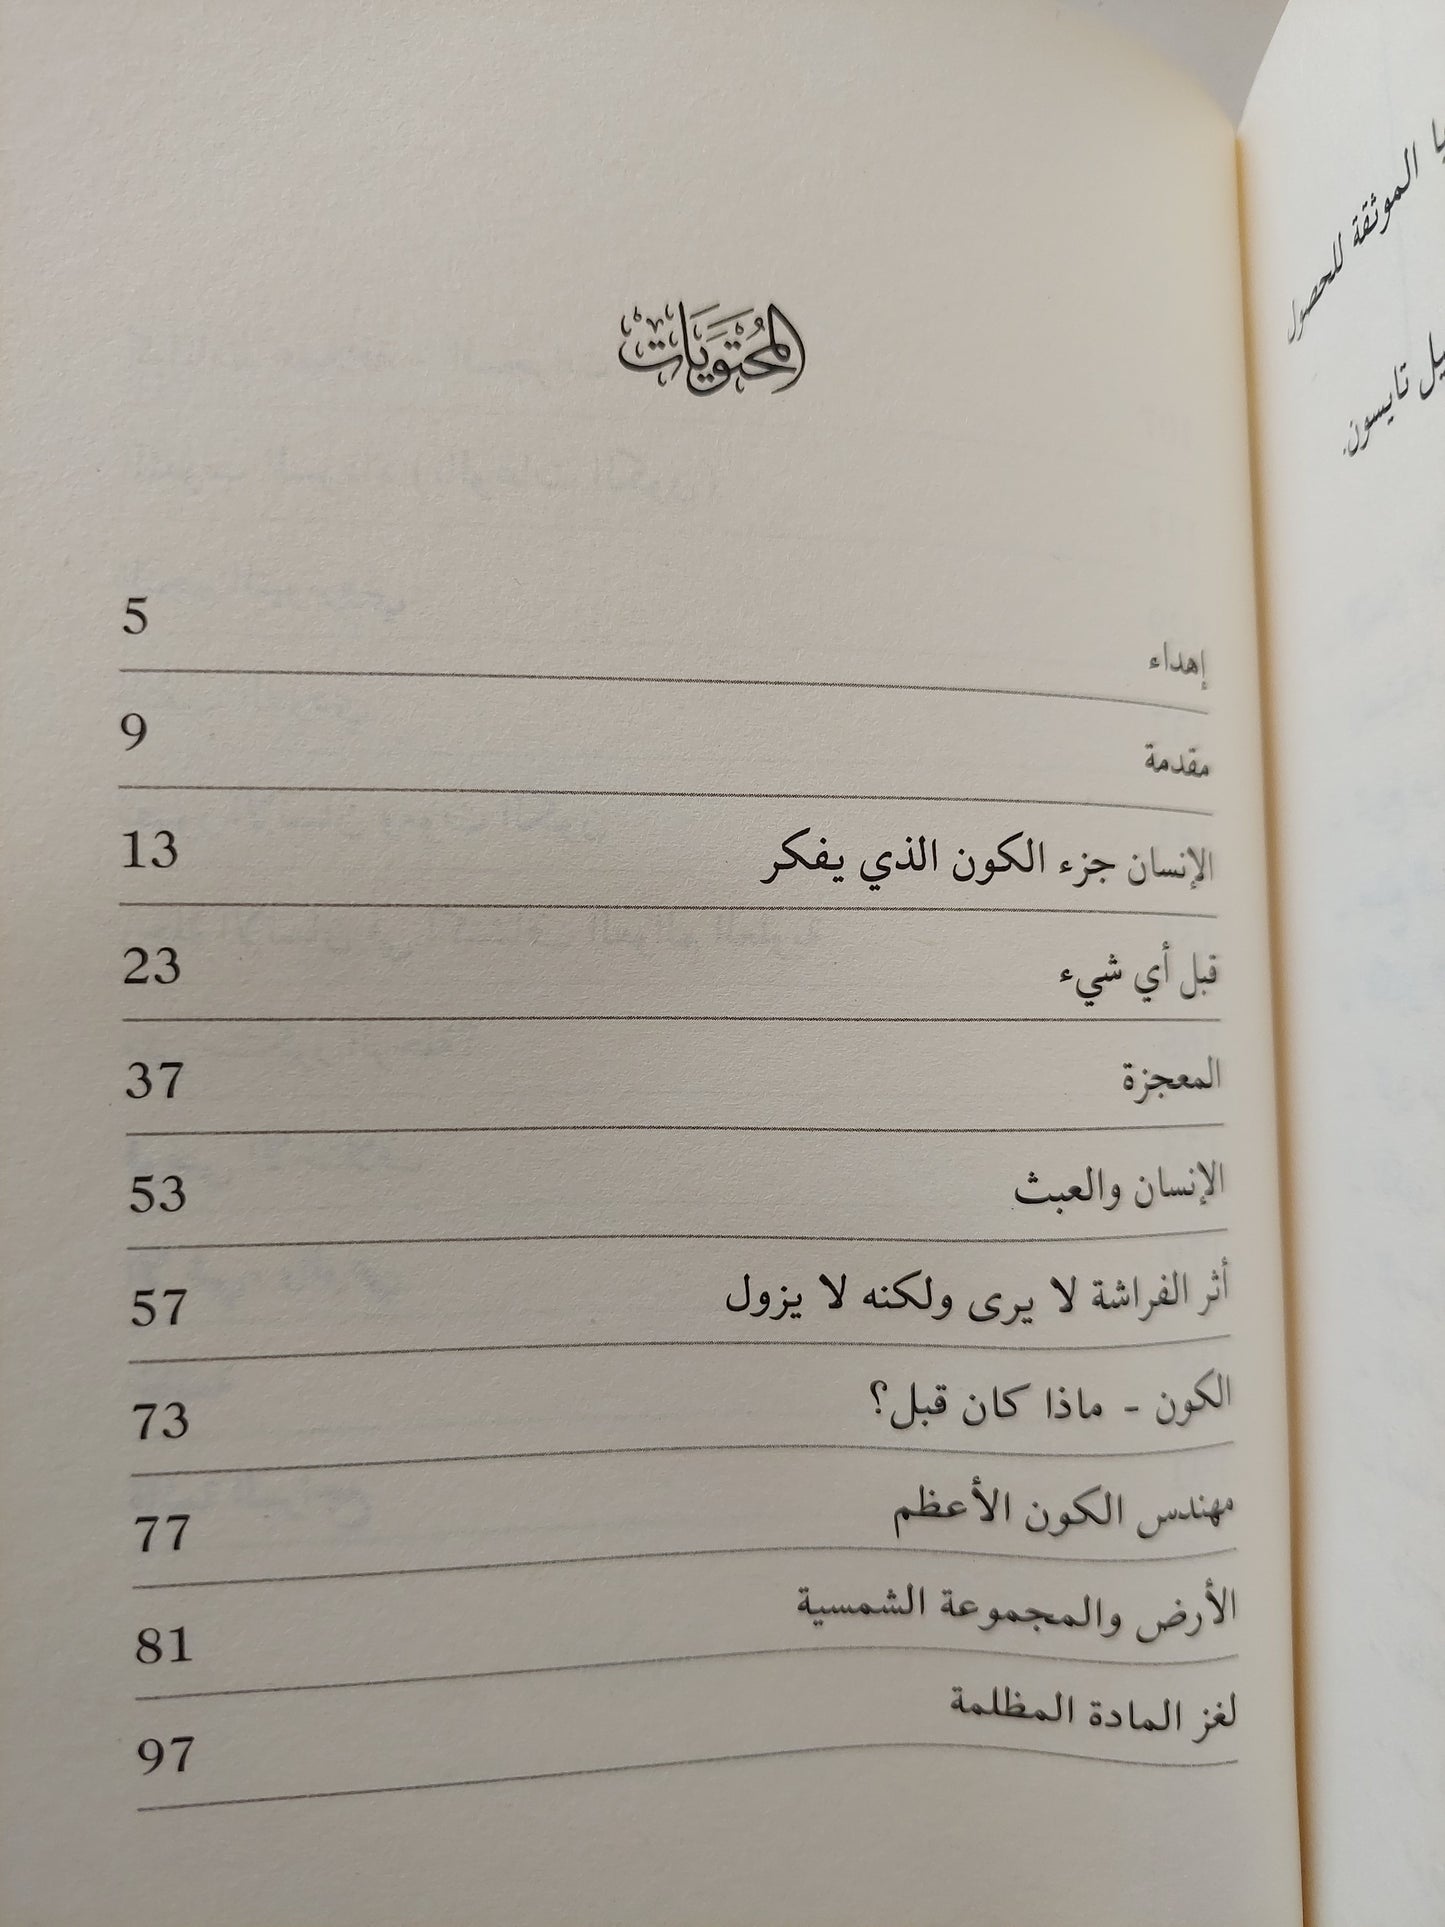 المُحتَوَيَات
إهداء 5
مقدمة 9
الإنسان جزء الكون الذي يفكر 13
قبل أي شيء 23
المعجزة 37
الإنسان والعبث 53
أثر الفراشة لا يرى ولكنه لا يزول 57
الكون - ماذا كان قبل؟ 73
مهندس الكون الأعظم 77
الأرض والمجموعة الشمسية 81
لغز المادة المظلمة 97
الموثقة للحصول
تايسون.